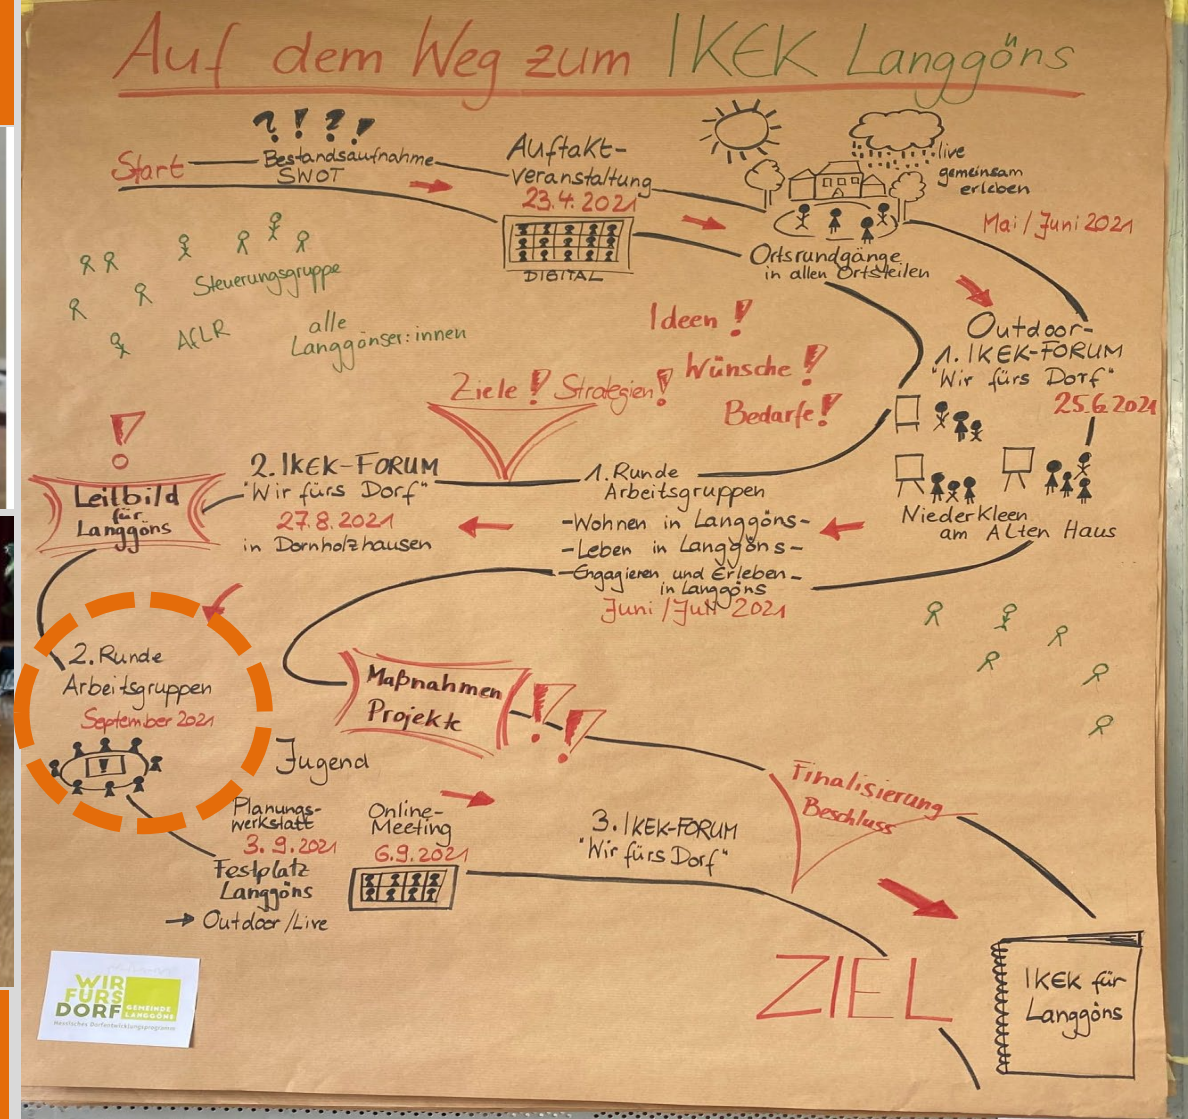 Auf dem Weg zum IKEK Langgöns
Start
? ! ? !
Bestandsaufnahme
SWOT
Auftakt-
veranstaltung
23.4.2021
DIGITAL
live
gemeinsam
erleben
Mai/Juni 2021
Ortsrundgänge
in allen Ortsteilen
Steuerungsgruppe
AfLR
alle
Langgönser:innen
Ideen!
Wünsche!
Bedarfe!
Ziele! Strategien!
Outdoor-
1. IKEK-FORUM
"Wir fürs Dorf"
25.6.2021
Niederkleen
am Alten Haus
1. Runde
Arbeitsgruppen
-Wohnen in Langgöns-
-Leben in Langgöns-
-Engagieren und Erleben-
in Langgöns
Juni/Juli 2021
2. IKEK-FORUM
"Wir fürs Dorf"
27.8.2021
in Dornholzhausen
!
Leitbild
für
Langgöns
2. Runde
Arbeitsgruppen
September 2021
!
Maßnahmen
Projekte
!!
Jugend
Planungs-
werkstatt
3.9.2021
Festplatz
Langgöns
→ Outdoor/Live
Online-
Meeting
6.9.2021
3. IKEK-FORUM
"Wir fürs Dorf"
Finalisierung
Beschluss
ZIEL
IKEK für
Langgöns
WIR
FÜRS
DORF
GEMEINDE
LANGGÖNS
Hessisches Dorfentwicklungsprogramm